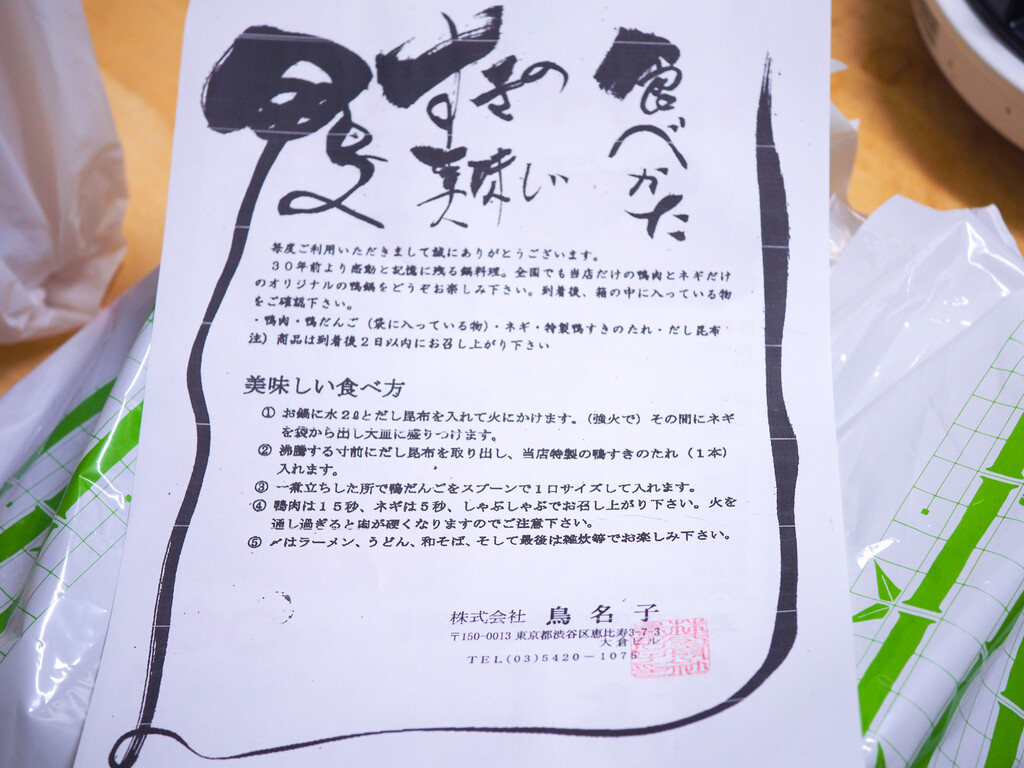 鴨すきの美味しい食べかた
毎度ご利用いただきまして誠にありがとうございます。
３０年前より感動と記憶に残る鍋料理。全国でも当店だけの鴨肉とネギだけ
のオリジナルの鴨鍋をどうぞお楽しみ下さい。到着後、箱の中に入っている物
をご確認下さい。
・鴨肉・鴨だんご（袋に入っている物）・ネギ・特製鴨すきのたれ・だし昆布
注）商品は到着後２日以内にお召し上がり下さい
美味しい食べ方
① お鍋に水２ℓとだし昆布を入れて火にかけます。（強火で）その間にネギ
を袋から出し大皿に盛りつけます。
② 沸騰する寸前にだし昆布を取り出し、当店特製の鴨すきのたれ（１本）
入れます。
③ 一煮立ちした所で鴨だんごをスプーンで１口サイズして入れます。
④ 鴨肉は１５秒、ネギは５秒、しゃぶしゃぶでお召し上がり下さい。火を
通し過ぎると肉が硬くなりますのでご注意下さい。
⑤ 〆はラーメン、うどん、和そば、そして最後は雑炊等でお楽しみ下さい。
株式会社 鳥名子
〒150-0013 東京都渋谷区恵比寿3-7-3
大倉ビル
TEL(03)5420-1075